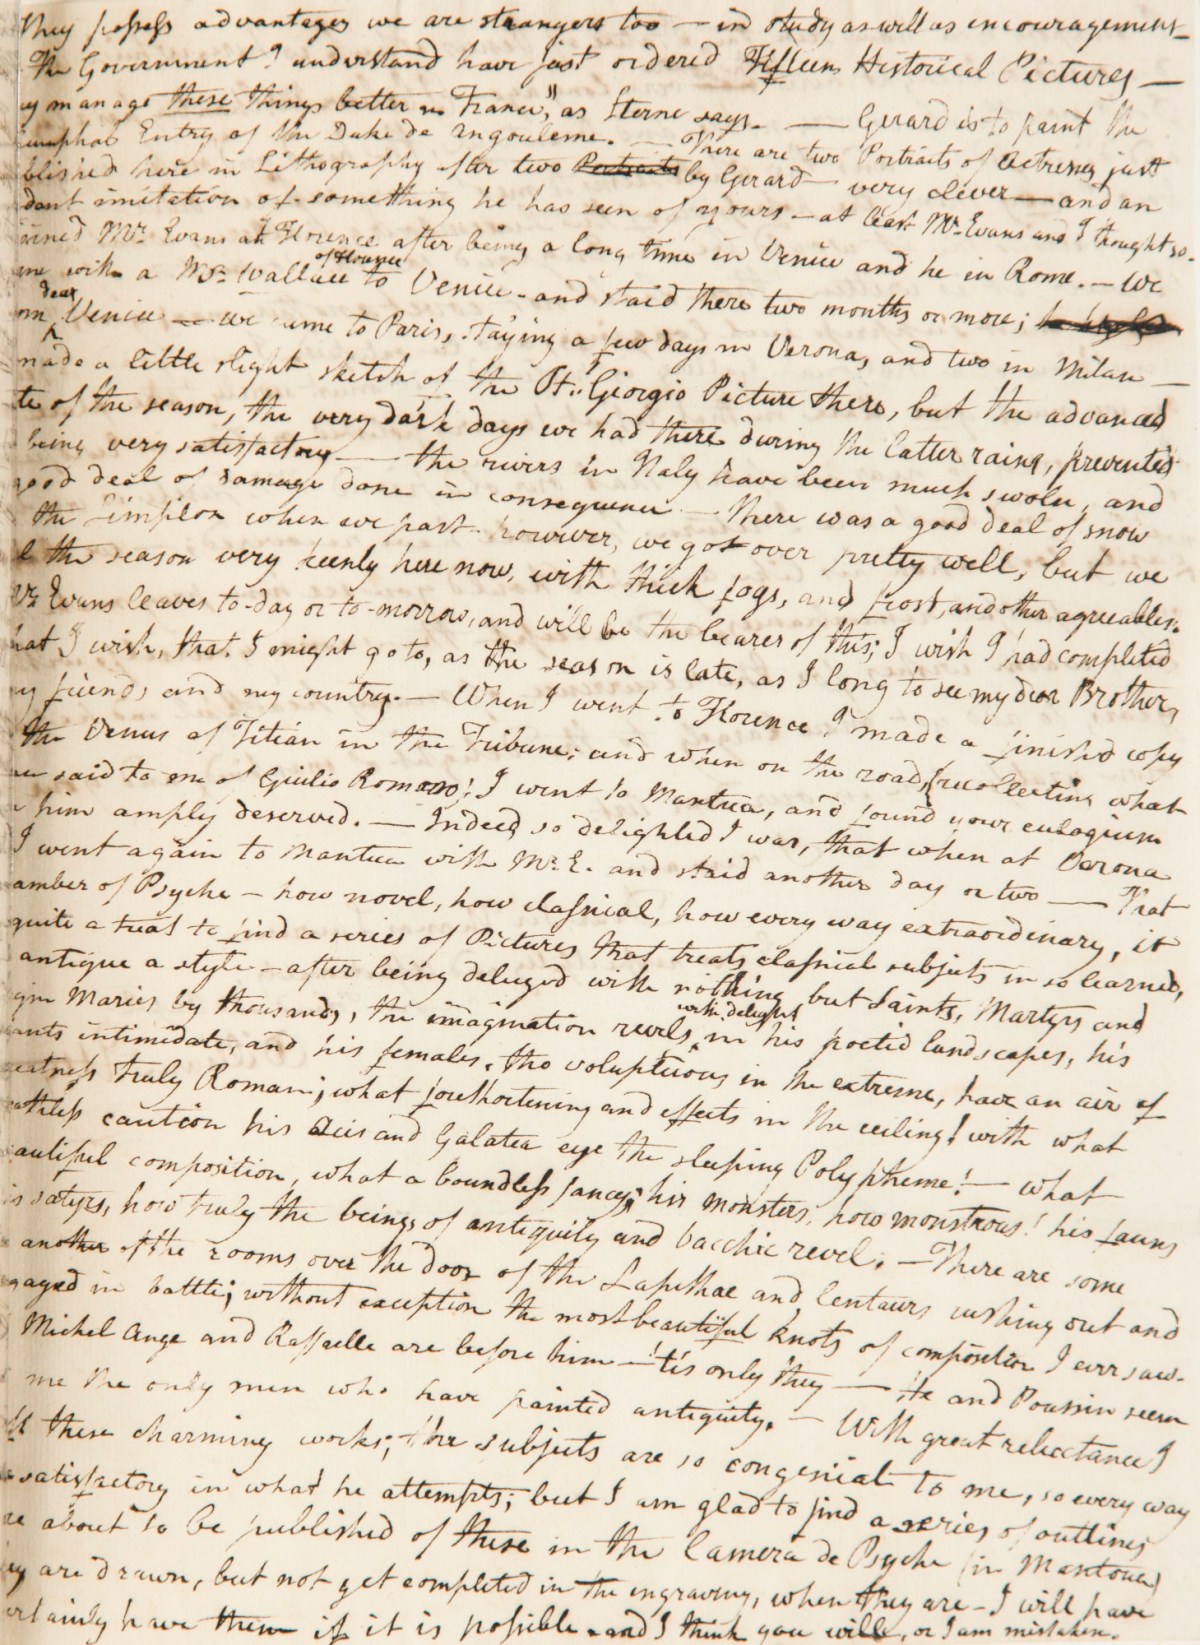 they possess advantages we are strangers too — in study as well as encouragement —
The Government I understand have just ordered Fifteen Historical Pictures —
manage these things better in France", as Sterne says. — Gerard is to paint the
Entry of the Duke de Angouleme. — There are two Portraits of Actresses just
blished here in Lithography after two Portraits by Gerard — very clever — and an
dant imitation of something he has seen of yours — at least Mr. Evans and I thought so.
ined Mr. Evans at Florence after being a long time in Venice and he in Rome. — We
me with a Mr. Wallace of Florence to Venice — and staid there two months or more;
om dear Venice — we came to Paris, staying a few days in Verona, and two in Milan —
made a little slight sketch of the St. Giorgio Picture there, but the advanced
te of the season, the very dark days we had there during the latter rains, prevented
being very satisfactory — the rivers in Italy have been much swoln, and
good deal of damage done in consequence — There was a good deal of snow
the Simplon when we past — however, we got over pretty well, but we
l the season very keenly here now, with thick fogs, and frost, and other agreeables.
Mr. Evans leaves to-day or to-morrow, and will be the bearer of this; I wish I had completed
hat I wish, that I might go to, as the season is late, as I long to see my dear Brother,
my friends and my country. — When I went to Florence I made a finished copy
the Venus of Titian in the Tribune; and when on the road, (recollecting what
said to me of Giulio Romano; I went to Mantua, and found your eulogium
him amply deserved. — Indeed so delighted I was, that when at Verona
I went again to Mantua with Mr. E. and staid another day or two — That
amber of Psyche — how novel, how classical, how every way extraordinary, it
quite a treat to find a series of Pictures that treats classical subjects in so learned,
antique a style — after being deluged with nothing but Saints, Martyrs and
gin Maries by thousands, the imagination revels with delight in his poetic landscapes, his
ants intimidate, and his females, tho voluptuous in the extreme, have an air of
eatness truly Roman; what foreshortening and effects in the ceiling! with what
eathless caution his Acis and Galatea eye the sleeping Polypheme! — what
autiful composition, what a boundless fancy; his monsters, how monstrous! his fauns
is satyrs, how truly the beings of antiquity and bacchic revel. — There are some
another of the rooms over the door of the Lapithae and Centaurs rushing out and
gaged in battle; without exception the most beautiful knots of composition I ever saw.
Michel Ange and Raffaelle are before him — 'tis only they — He and Poussin seem
me the only men who have painted antiquity. — With great reluctance I
ft these charming works; the subjects are so congenial to me, so every way
satisfactory in what he attempts; but I am glad to find a series of outlines
re about to be published of these in the Camera de Psyche (in Mantova)
ey are drawn, but not yet completed in the engraving, when they are — I will have
ertainly have them if it is possible — and I think you will, or I am mistaken.